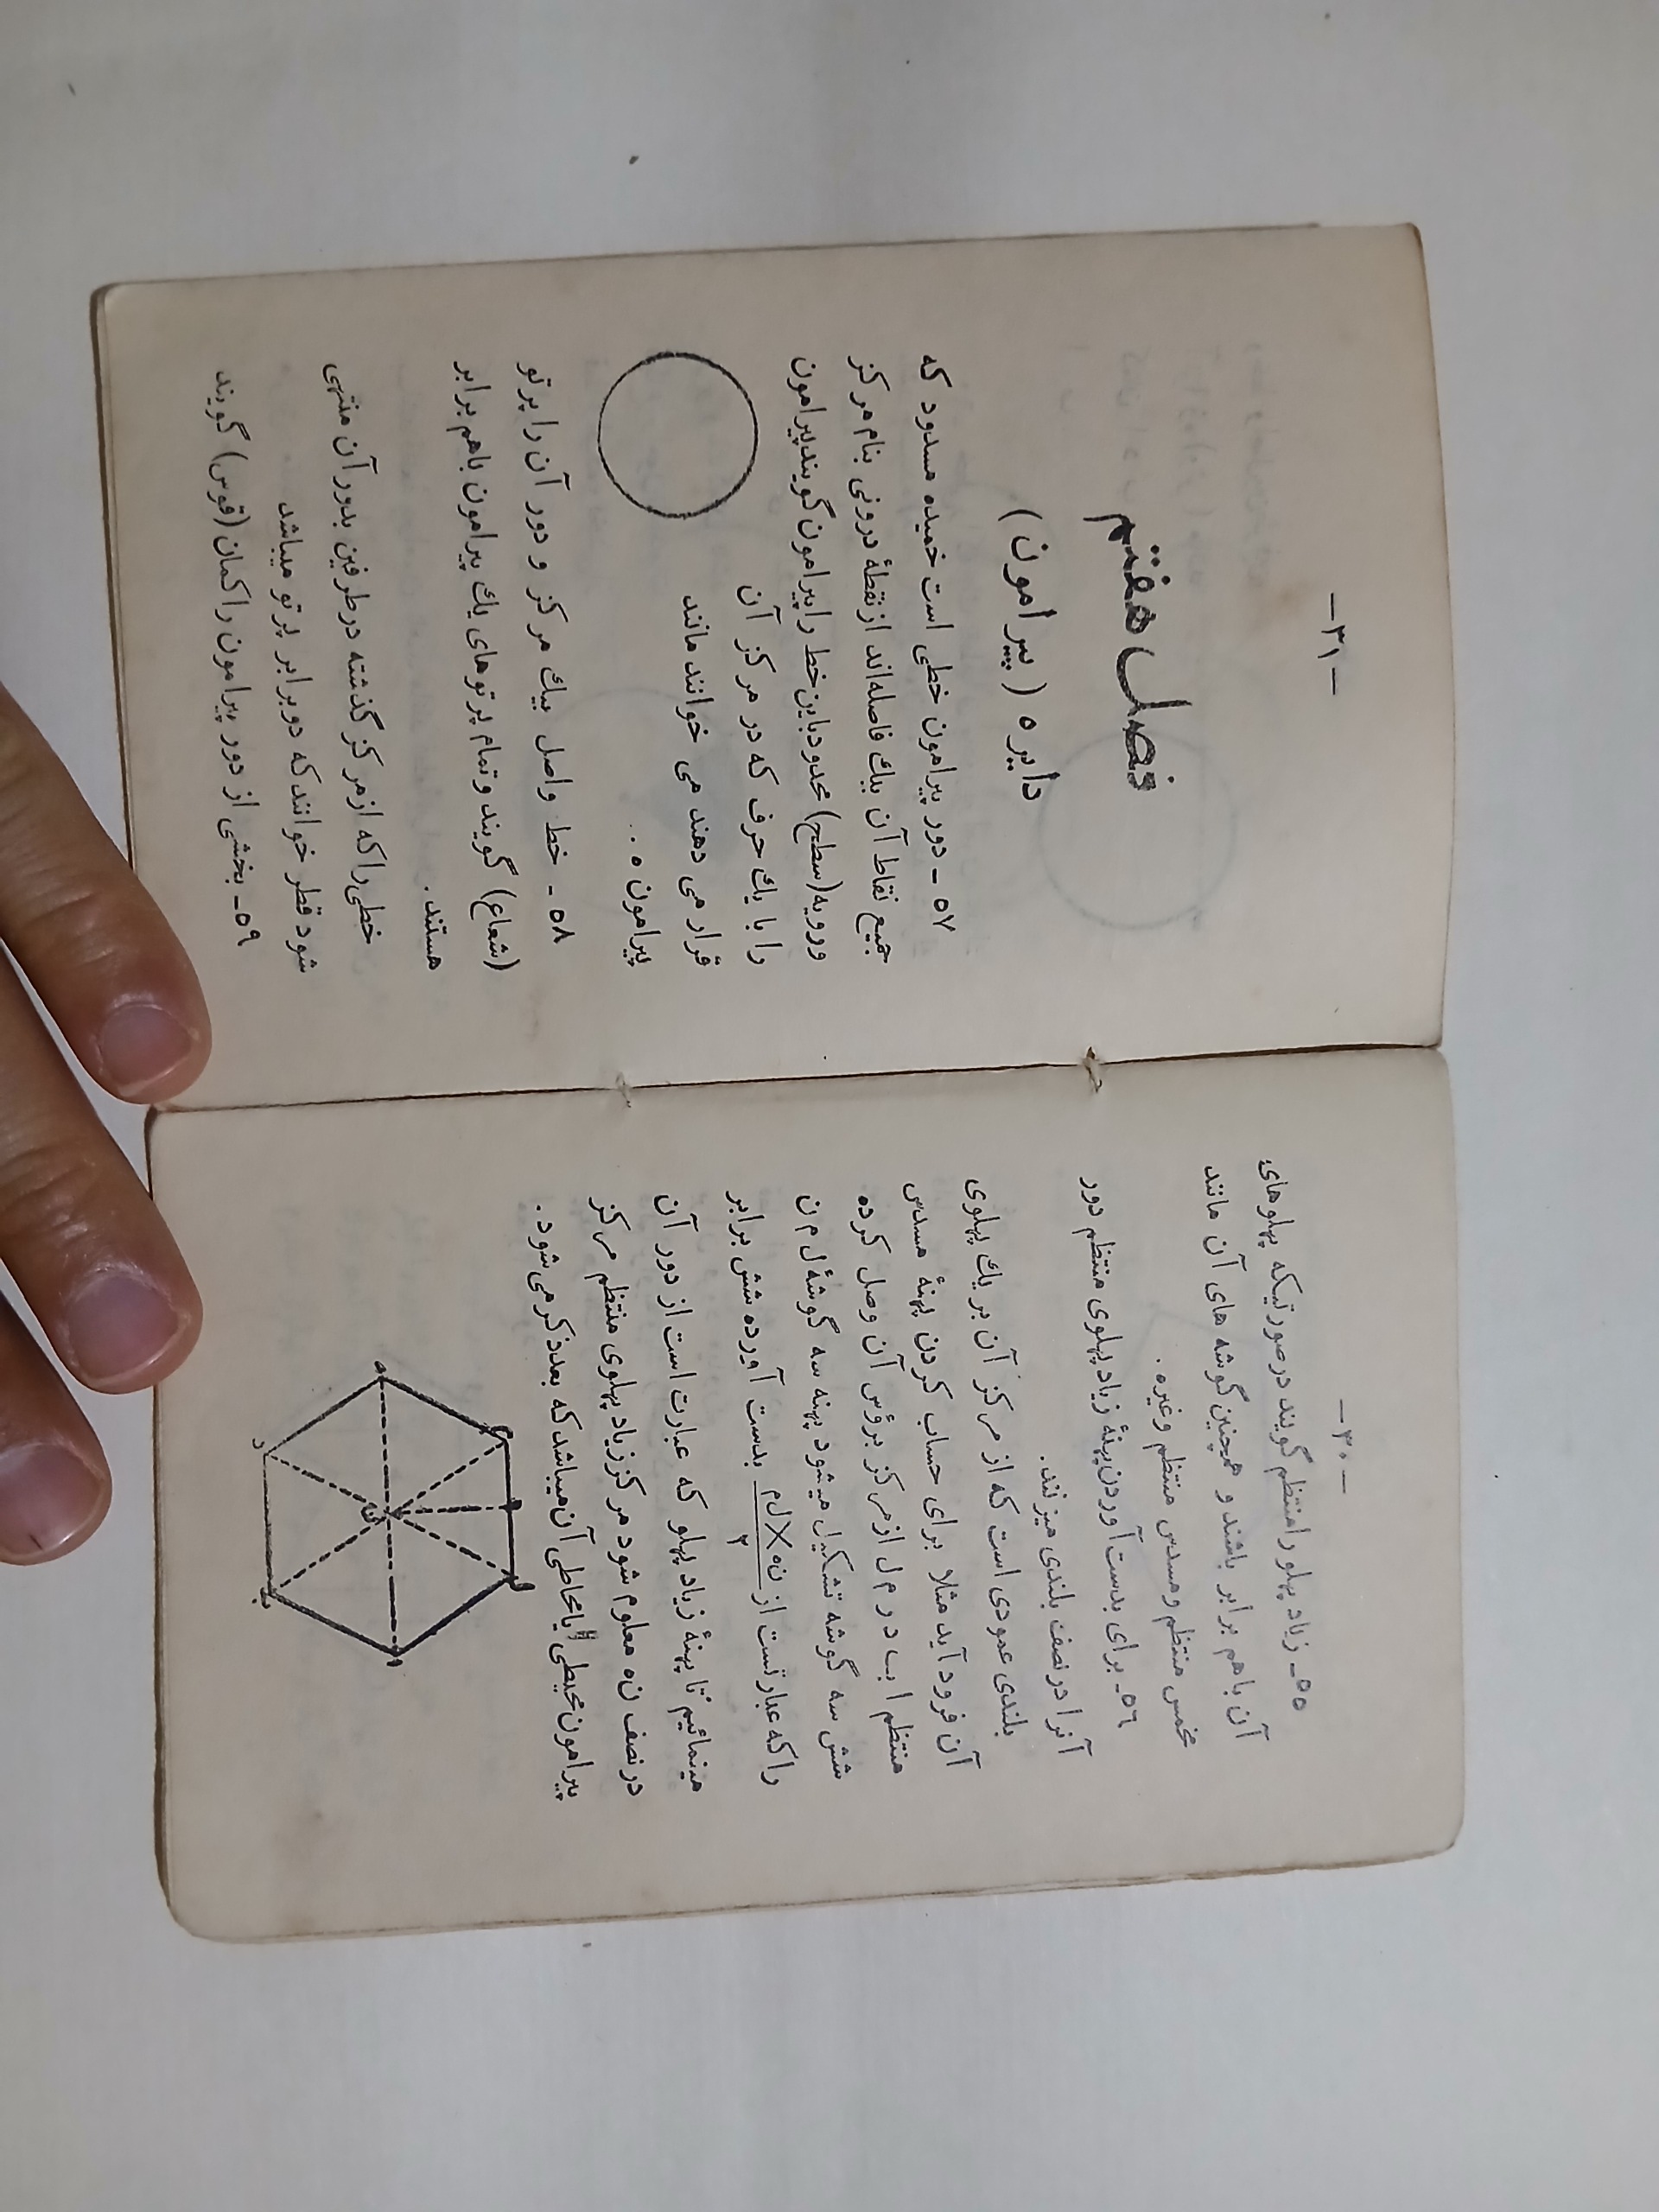 -۳۰-
۵۵- زیاد پهلو را منتظم گویند در صورتیکه پهلوهای
آن باهم برابر باشند و همچنین گوشه های آن مانند
مخمس منتظم و مسدس منتظم وغیره .
۵۶- برای بدست آوردن پهنهٔ زیاد پهلوی منتظم دور
آنرا در نصف بلندی میزنند.
بلندی عمودی است که از مرکز آن بر یك پهلوی
آن فرود آید مثلا برای حساب کردن پهنهٔ مسدس
منتظم ا ب د ر م ل از مرکز برؤس آن وصل کرده
شش سه گوشه تشکیل میشود پهنه سه گوشهٔ ل م ن
را که عبارتست از ن ه × ل م / ۲ بدست آورده شش برابر
مینمائیم تا پهنهٔ زیاد پهلو که عبارت است از دور آن
در نصف ن ه معلوم شود مرکز زیاد پهلوی منتظم مرکز
پیرامون محیطی یا محاطی آن میباشد که بعد ذکر می شود .
م
ه
ل
ر
ن
ا
د
ب
-۳۱-
فصل هفتم
دایره ( پیرامون )
۵۷ - دور پیرامون خطی است خمیده مسدود که
جمیع نقاط آن بیك فاصله اند از نقطهٔ درونی بنام مرکز
ورویه (سطح) محدود باین خط را پیرامون گویند پیرامون
را با یك حرف که در مرکز آن
قرار می دهند می خوانند مانند
پیرامون ه . .
۵۸ - خط واصل بیك مرکز و دور آن را پرتو
(شعاع) گویند و تمام پرتوهای یك پیرامون باهم برابر
هستند .
خطی را که از مرکز گذشته در طرفین بدور آن منتهی
شود قطر خوانند که دو برابر پرتو میباشد
۵۹- بخشی از دور پیرامون را کمان (قوس) گویند